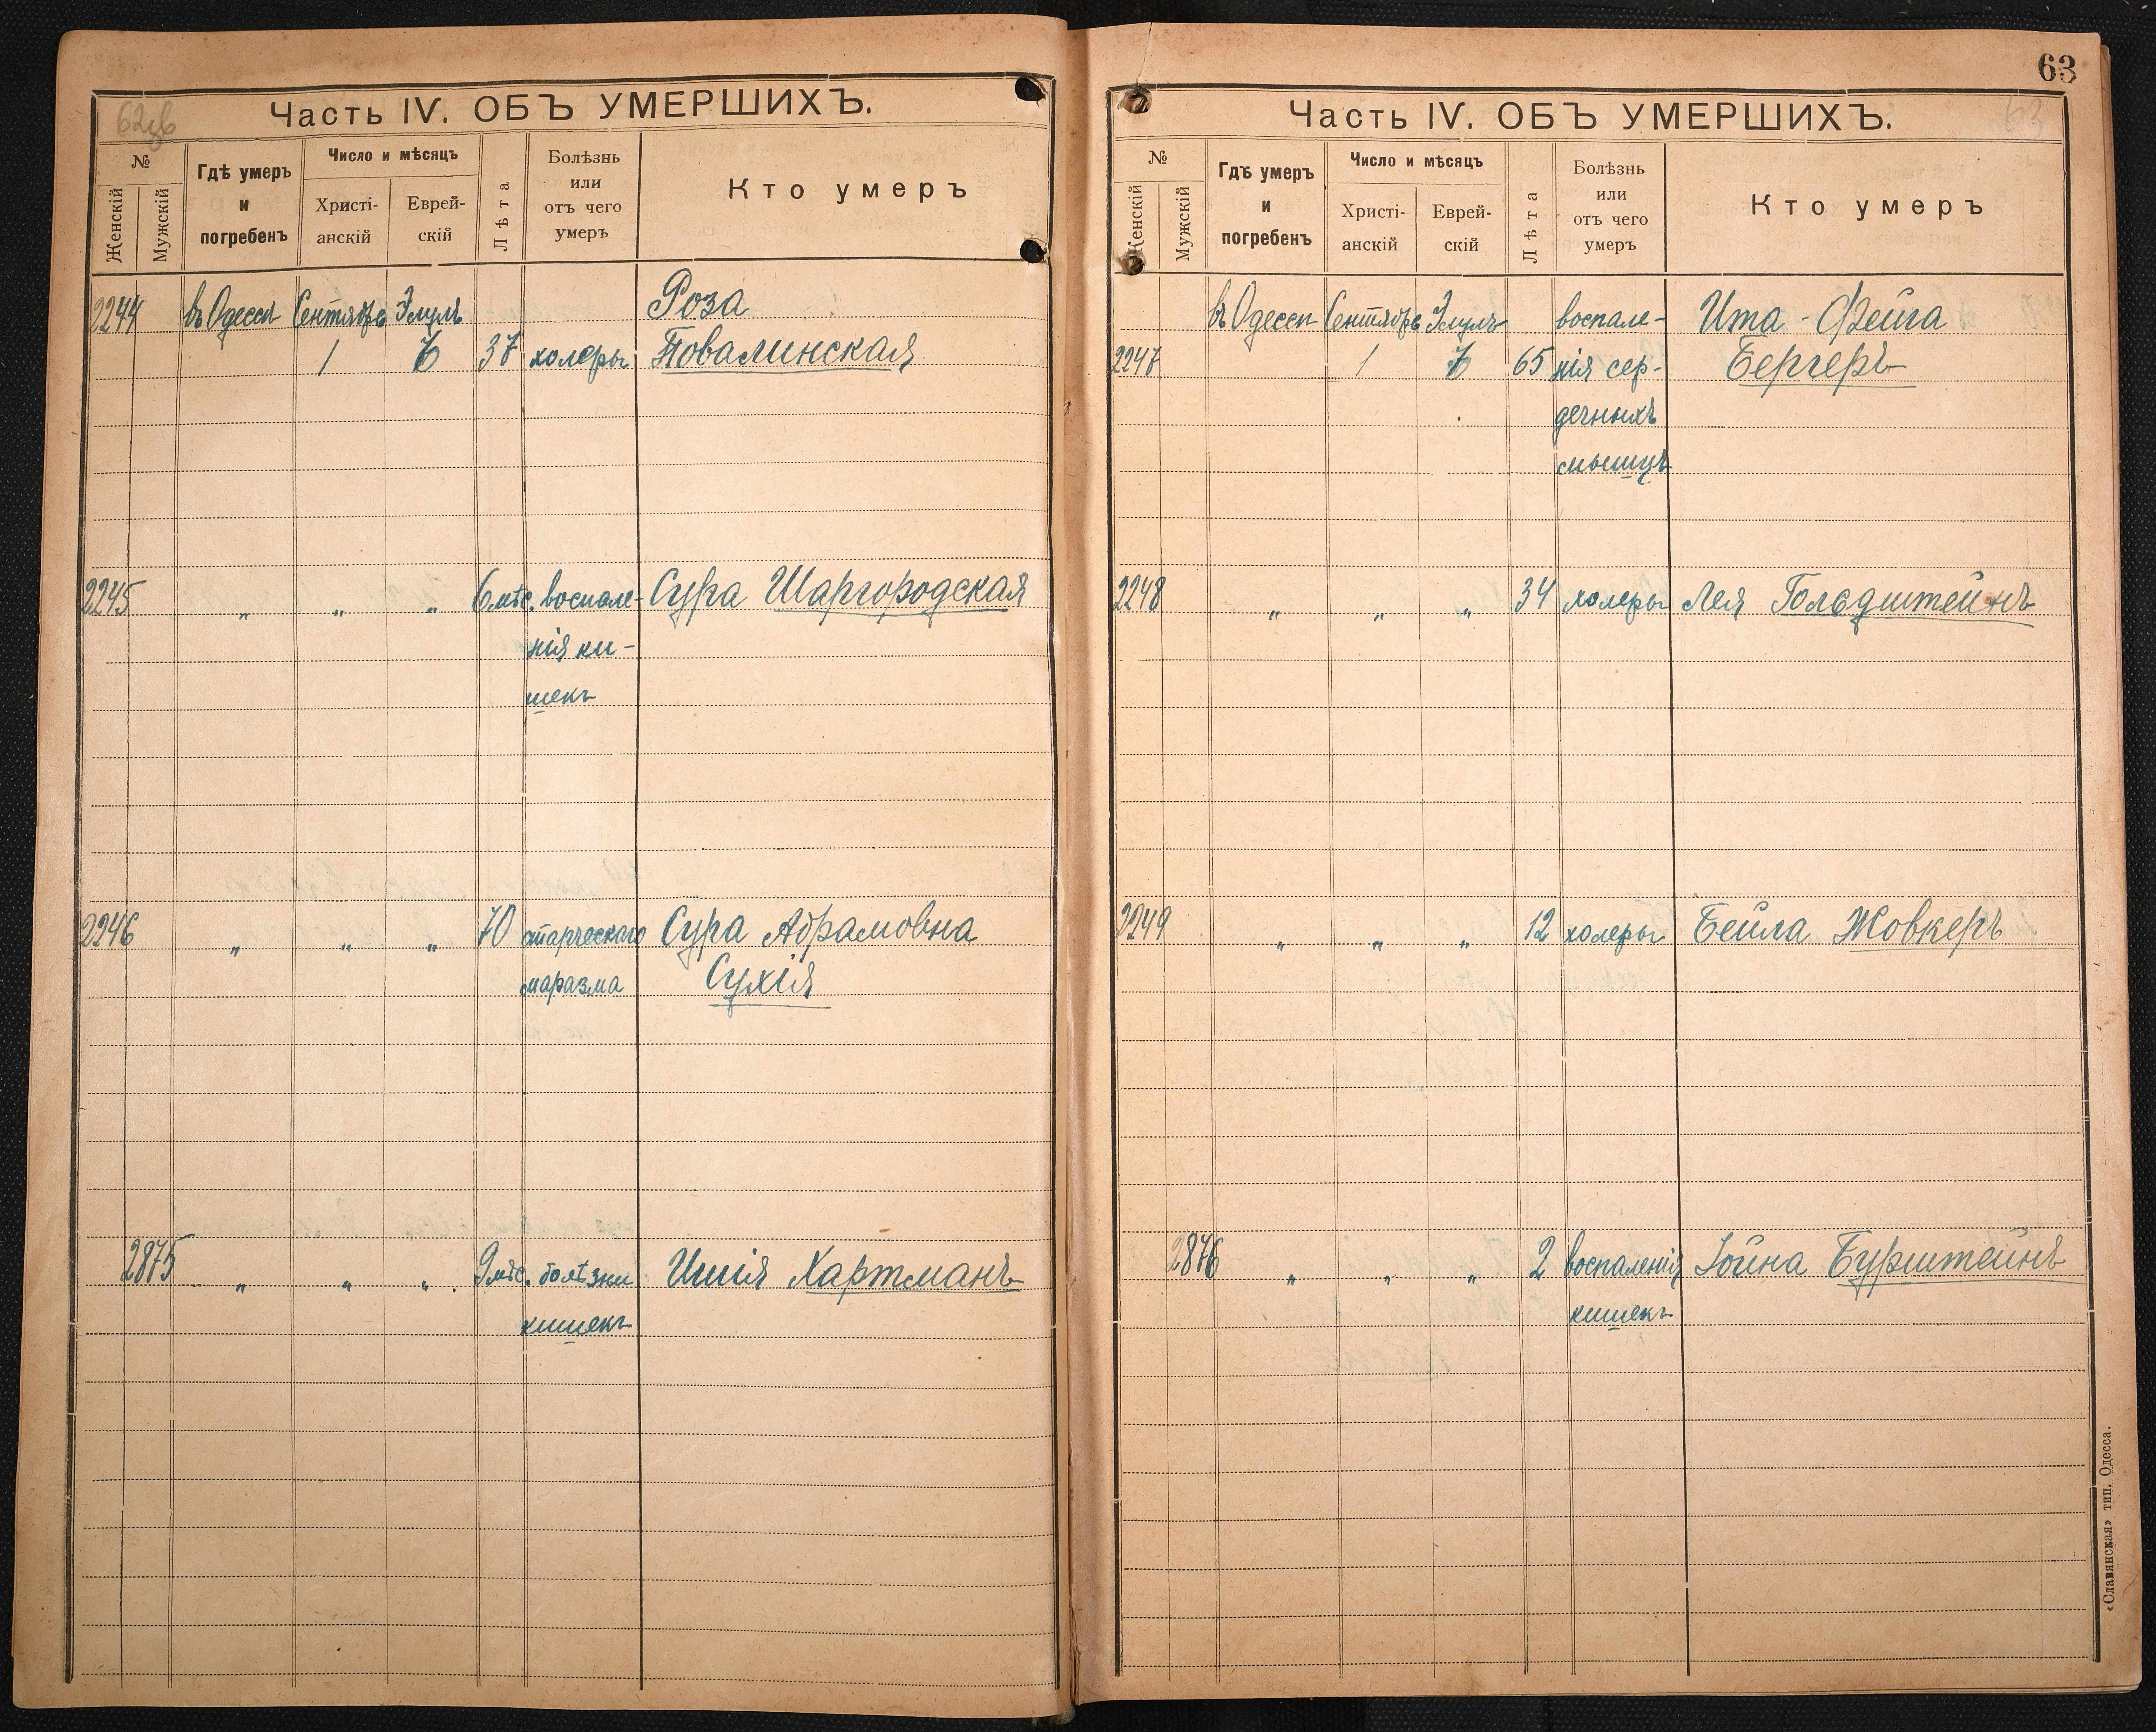 62зв
Часть IV. ОБЪ УМЕРШИХЪ.
№
Женскій
Мужскій
Гдѣ умеръ и погребенъ
Число и мѣсяцъ
Христі-анскій
Еврей-скій
Лѣта
Болѣзнь или отъ чего умеръ
Кто умеръ
2244 въ Одессѣ Сентябрь Элулъ Роза
1 6 37 холеры Повалинская
2245 „ „ „ 6 мѣс. воспале- Сура Шаргородская
нія ки-
шекъ
2246 „ „ „ 70 старческаго Сура Абрамовна
маразма Сухія
2875 „ „ „ 9 мѣс. болѣзни Ишія Хартманъ
кишекъ
63
63
Часть IV. ОБЪ УМЕРШИХЪ.
№
Женскій
Мужскій
Гдѣ умеръ и погребенъ
Число и мѣсяцъ
Христі-анскій
Еврей-скій
Лѣта
Болѣзнь или отъ чего умеръ
Кто умеръ
въ Одессѣ Сентябрь Элулъ воспале- Ита-Фейга
2247 1 6 65 нія сер- Бергеръ
дечныхъ
мышцъ
2248 „ „ „ 34 холеры Лея Гольдштейнъ
2249 „ „ „ 12 холеры Бейла Жовкеръ
2876 „ „ „ 2 воспаленія Іойна Бурштейнъ
кишекъ
«Славянская» тип. Одесса.